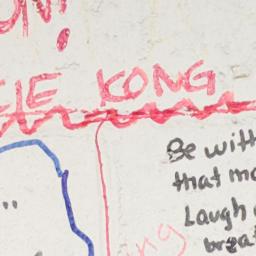 ON!
CIE KONG
Be with
that ma
Laugh
ing
breat